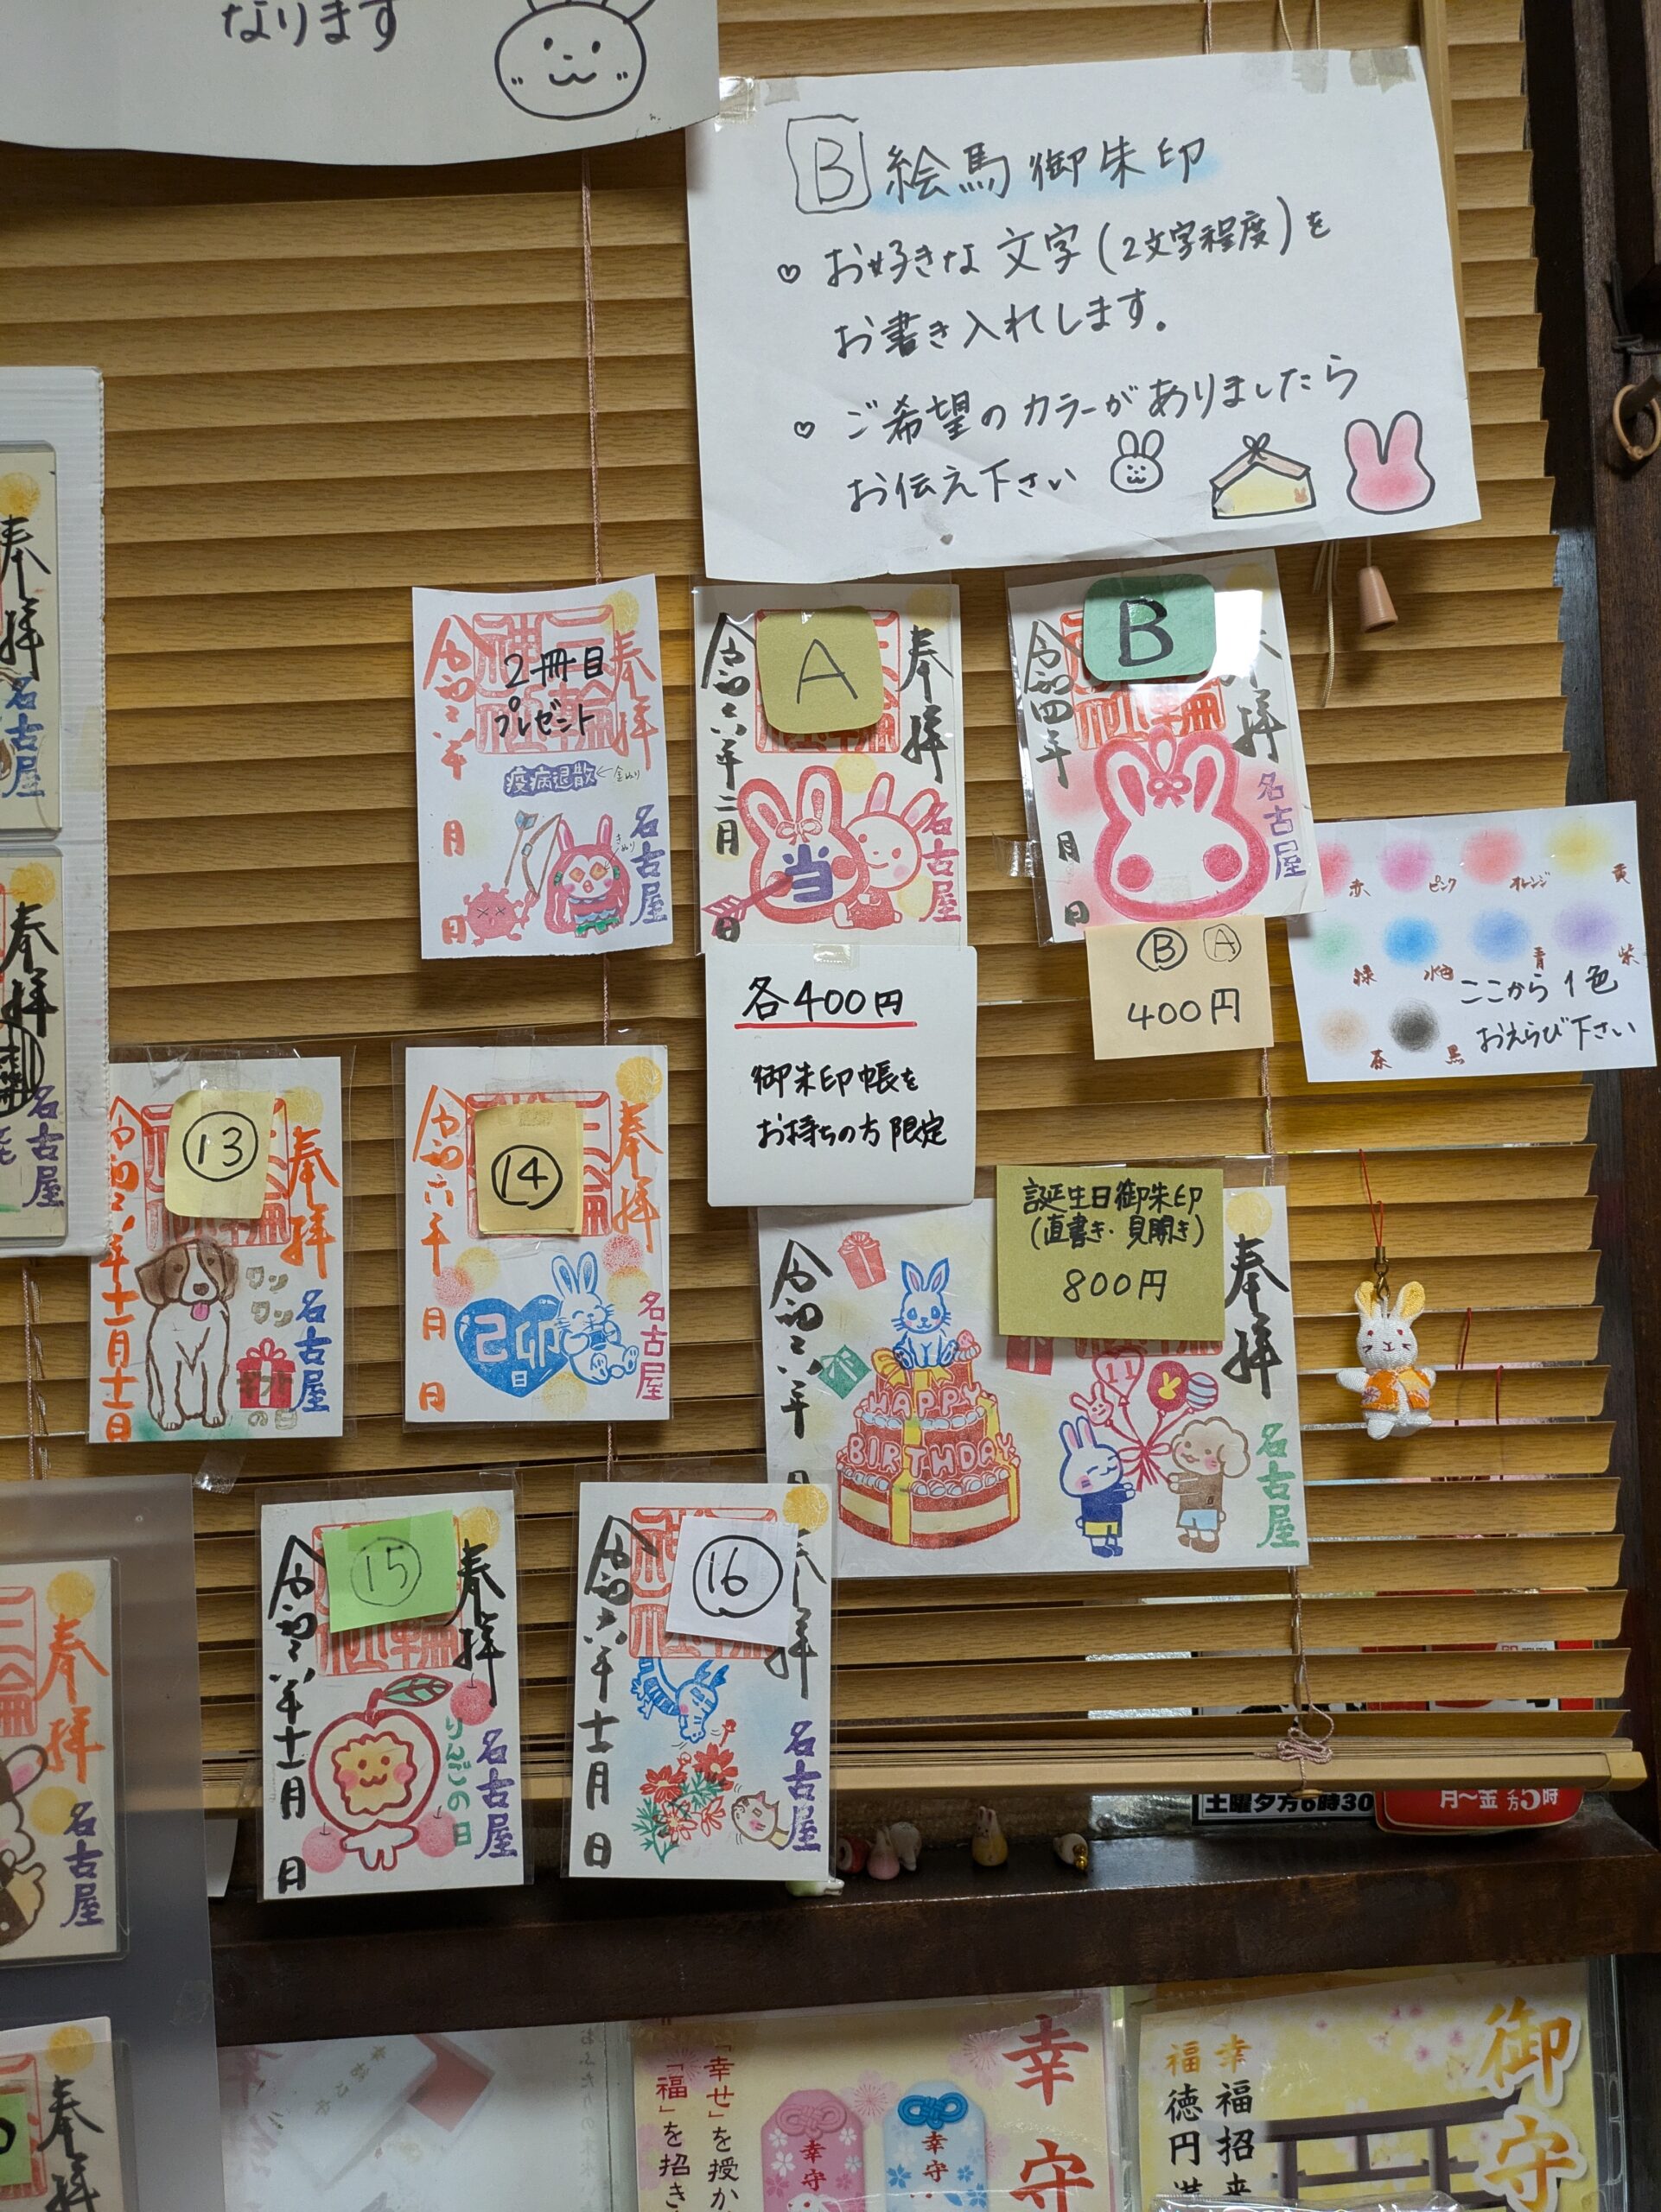 なります
B 絵馬御朱印
♡ お好きな文字(2文字程度)を
お書き入れします。
♡ ご希望のカラーがありましたら
お伝え下さい
奉拝
名古屋
奉拝
名古屋
奉拝
2冊目
プレゼント
令和六年
疫病退散
月
日
名古屋
A
奉拝
令和六年二月
日
当
名古屋
B
令和四年
月
日
名古屋
各400円
御朱印帳を
お持ちの方限定
B A
400円
赤 ピンク オレンジ 黄
緑 水色 青 紫
茶 黒
ここから1色
おえらび下さい
13
奉拝
令和六年十一月十一日
ワン
ワン
の日
名古屋
14
奉拝
令和六年
月
日
己卯
日
名古屋
誕生日御朱印
(直書き・見開き)
800円
奉拝
令和六年
HAPPY
BIRTHDAY
名古屋
15
奉拝
令和六年十一月
日
りんごの日
名古屋
16
奉拝
令和六年十一月
日
名古屋
奉拝
名古屋
奉拝
土曜夕方6時30
月〜金
方5時
幸守
「幸せ」を授か
「福」を招き
幸守
幸守
御守
幸福招来
福徳円満